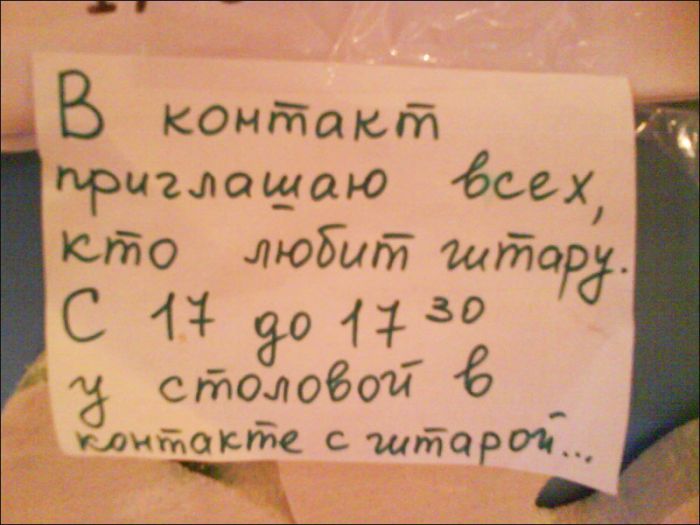 В контакт
приглашаю всех,
кто любит гитару.
С 17 до 17 30
у столовой в
контакте с гитарой...